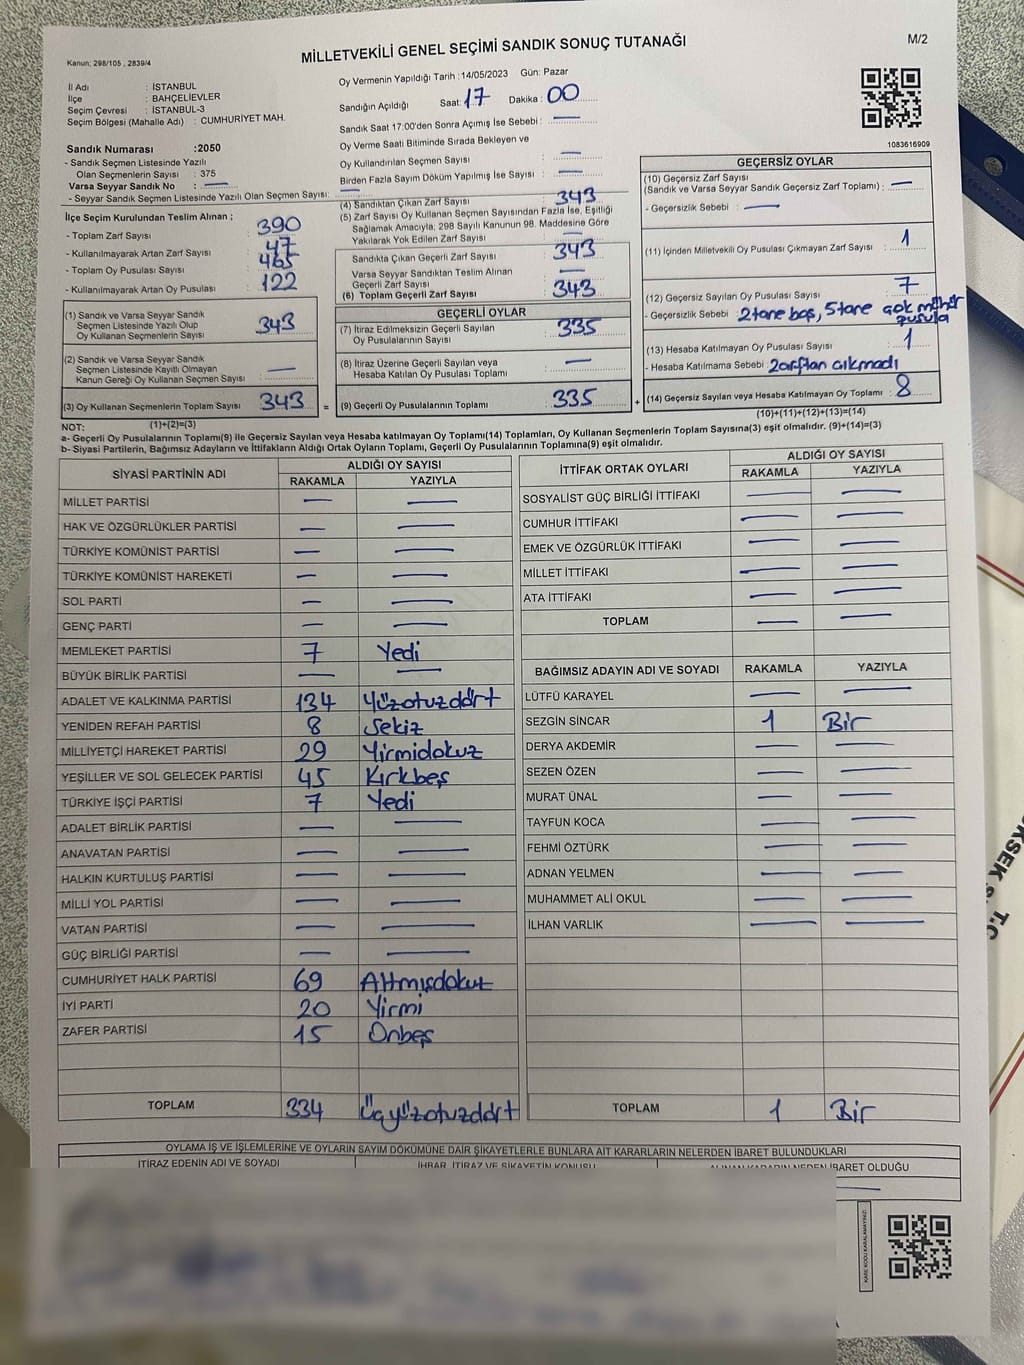 M/2
MİLLETVEKİLİ GENEL SEÇİMİ SANDIK SONUÇ TUTANAĞI
Kanun; 298/105 , 2839/4
İl Adı : İSTANBUL
İlçe : BAHÇELİEVLER
Seçim Çevresi : İSTANBUL-3
Seçim Bölgesi (Mahalle Adı) : CUMHURİYET MAH.
Sandık Numarası :2050
- Sandık Seçmen Listesinde Yazılı
Olan Seçmenlerin Sayısı : 375
Varsa Seyyar Sandık No : —
- Seyyar Sandık Listesinde Yazılı Olan Seçmen Sayısı: —
Oy Vermenin Yapıldığı Tarih : 14/05/2023 Gün: Pazar
Sandığın Açıldığı Saat: 17 Dakika : 00
Sandık Saat 17:00'den Sonra Açımış İse Sebebi : —
Oy Verme Saati Bitiminde Sırada Bekleyen ve
Oy Kullandırılan Seçmen Sayısı : —
Birden Fazla Sayım Döküm Yapılmış İse Sayısı : —
1083616909
İlçe Seçim Kurulundan Teslim Alınan ;
- Toplam Zarf Sayısı : 390
- Kullanılmayarak Artan Zarf Sayısı : 47
- Toplam Oy Pusulası Sayısı : 465
- Kullanılmayarak Artan Oy Pusulası : 122
(1) Sandık ve Varsa Seyyar Sandık
Seçmen Listesinde Yazılı Olup
Oy Kullanan Seçmenlerin Sayısı : 343
(2) Sandık ve Varsa Seyyar Sandık
Seçmen Listesinde Kayıtlı Olmayan
Kanun Gereği Oy Kullanan Seçmen Sayısı : —
(3) Oy Kullanan Seçmenlerin Toplam Sayısı : 343 =
(1)+(2)=(3)
(4) Sandıktan Çıkan Zarf Sayısı : 343
(5) Zarf Sayısı Oy Kullanan Seçmen Sayısından Fazla İse, Eşitliği
Sağlamak Amacıyla; 298 Sayılı Kanunun 98. Maddesine Göre
Yakılarak Yok Edilen Zarf Sayısı : —
Sandıkta Çıkan Geçerli Zarf Sayısı : 343
Varsa Seyyar Sandıktan Teslim Alınan
Geçerli Zarf Sayısı : —
(6) Toplam Geçerli Zarf Sayısı : 343
GEÇERLİ OYLAR
(7) İtiraz Edilmeksizin Geçerli Sayılan
Oy Pusulalarının Sayısı : 335
(8) İtiraz Üzerine Geçerli Sayılan veya
Hesaba Katılan Oy Pusulası Toplamı : —
(9) Geçerli Oy Pusulalarının Toplamı : 335 +
GEÇERSİZ OYLAR
(10) Geçersiz Zarf Sayısı
(Sandık ve Varsa Seyyar Sandık Geçersiz Zarf Toplamı) : —
- Geçersizlik Sebebi : —
(11) İçinden Milletvekili Oy Pusulası Çıkmayan Zarf Sayısı : 1
(12) Geçersiz Sayılan Oy Pusulası Sayısı : 7
- Geçersizlik Sebebi : 2 tane boş, 5 tane çok mühür
pusula
(13) Hesaba Katılmayan Oy Pusulası Sayısı : 1
- Hesaba Katılmama Sebebi : zarftan çıkmadı
(14) Geçersiz Sayılan veya Hesaba Katılmayan Oy Toplamı : 8
(10)+(11)+(12)+(13)=(14)
NOT:
a- Geçerli Oy Pusulalarının Toplamı(9) ile Geçersiz Sayılan veya Hesaba katılmayan Oy Toplamı(14) Toplamları, Oy Kullanan Seçmenlerin Toplam Sayısına(3) eşit olmalıdır. (9)+(14)=(3)
b- Siyasi Partilerin, Bağımsız Adayların ve İttifakların Aldığı Ortak Oyların Toplamı, Geçerli Oy Pusulalarının Toplamına(9) eşit olmalıdır.
SİYASİ PARTİNİN ADI ALDIĞI OY SAYISI
RAKAMLA YAZIYLA
MİLLET PARTİSİ — —
HAK VE ÖZGÜRLÜKLER PARTİSİ — —
TÜRKİYE KOMÜNİST PARTİSİ — —
TÜRKİYE KOMÜNİST HAREKETİ — —
SOL PARTİ — —
GENÇ PARTİ — —
MEMLEKET PARTİSİ 7 Yedi
BÜYÜK BİRLİK PARTİSİ — —
ADALET VE KALKINMA PARTİSİ 134 Yüzotuzdört
YENİDEN REFAH PARTİSİ 8 Sekiz
MİLLİYETÇİ HAREKET PARTİSİ 29 Yirmidokuz
YEŞİLLER VE SOL GELECEK PARTİSİ 45 Kırkbeş
TÜRKİYE İŞÇİ PARTİSİ 7 Yedi
ADALET BİRLİK PARTİSİ — —
ANAVATAN PARTİSİ — —
HALKIN KURTULUŞ PARTİSİ — —
MİLLİ YOL PARTİSİ — —
VATAN PARTİSİ — —
GÜÇ BİRLİĞİ PARTİSİ — —
CUMHURİYET HALK PARTİSİ 69 Altmışdokuz
İYİ PARTİ 20 Yirmi
ZAFER PARTİSİ 15 Onbeş
TOPLAM 334 Üçyüzotuzdört
İTTİFAK ORTAK OYLARI ALDIĞI OY SAYISI
RAKAMLA YAZIYLA
SOSYALİST GÜÇ BİRLİĞİ İTTİFAKI — —
CUMHUR İTTİFAKI — —
EMEK VE ÖZGÜRLÜK İTTİFAKI — —
MİLLET İTTİFAKI — —
ATA İTTİFAKI — —
TOPLAM — —
BAĞIMSIZ ADAYIN ADI VE SOYADI RAKAMLA YAZIYLA
LÜTFÜ KARAYEL — —
SEZGİN SİNCAR 1 Bir
DERYA AKDEMİR — —
SEZEN ÖZEN — —
MURAT ÜNAL — —
TAYFUN KOCA — —
FEHMİ ÖZTÜRK — —
ADNAN YELMEN — —
MUHAMMET ALİ OKUL — —
İLHAN VARLIK — —
TOPLAM 1 Bir
OYLAMA İŞ VE İŞLEMLERİNE VE OYLARIN SAYIM DÖKÜMÜNE DAİR ŞİKAYETLERLE BUNLARA AİT KARARLARIN NELERDEN İBARET BULUNDUKLARI
İTİRAZ EDENİN ADI VE SOYADI İHBAR, İTİRAZ VE ŞİKAYETİN KONUSU ALINAN KARARIN NEDEN İBARET OLDUĞU
KARE KODU KARALAMAYINIZ!
T.C.